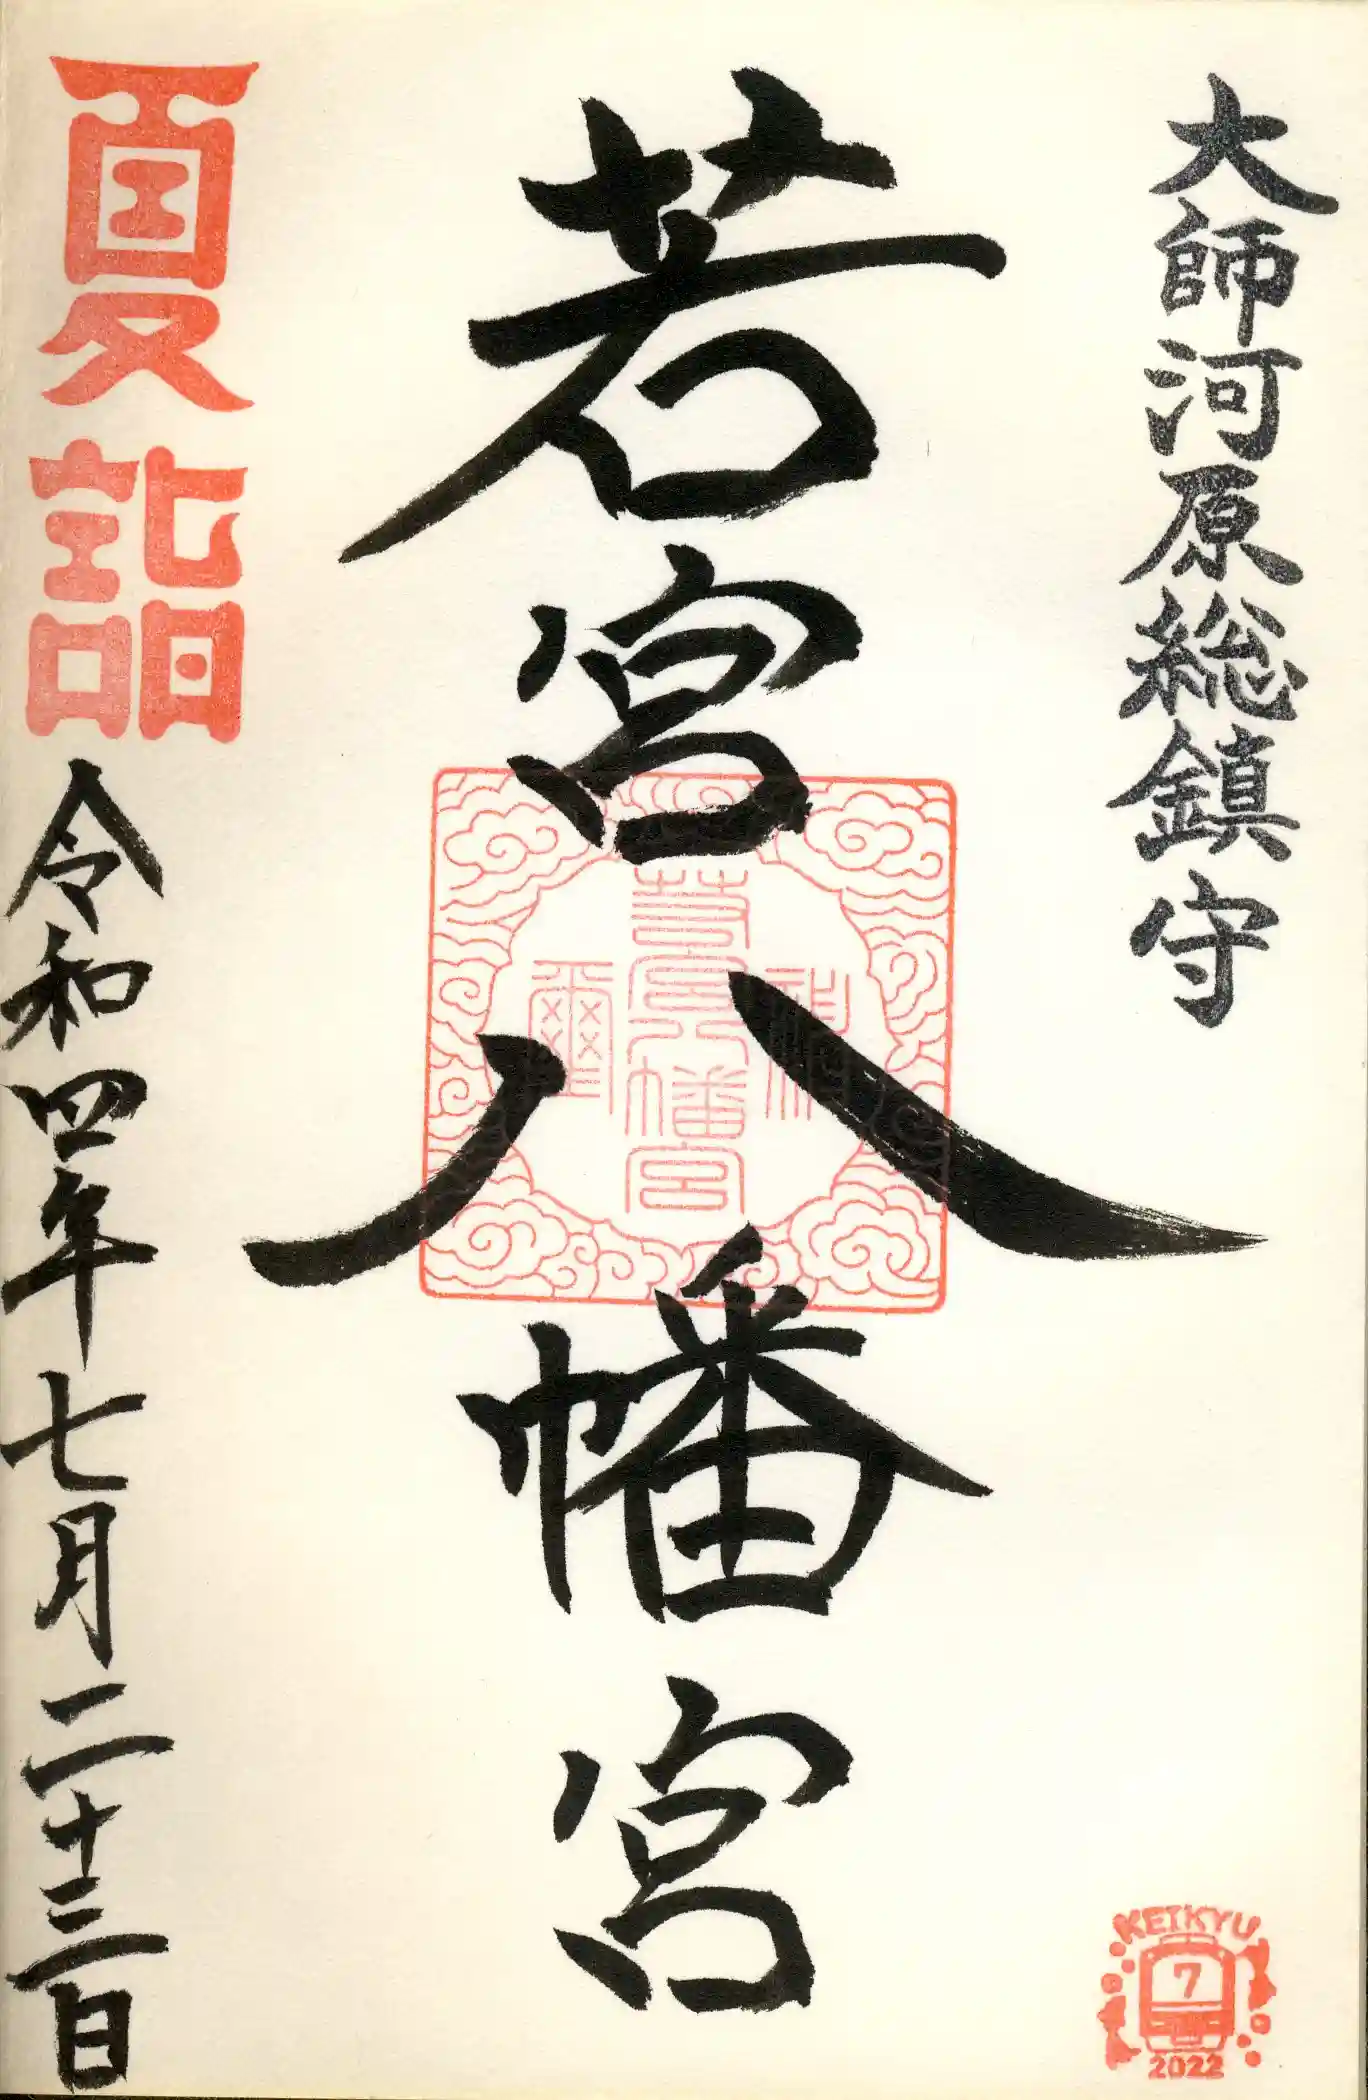 大師河原総鎮守
若宮八幡宮
神
若宮八幡宮
璽
夏詣
令和四年七月二十三日
KEIKYU
7
2022